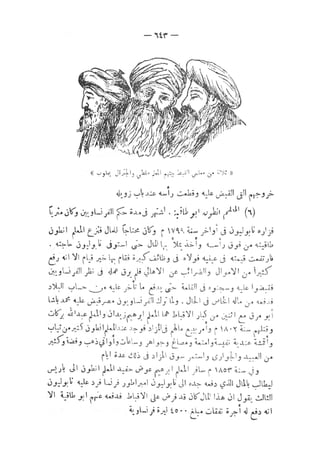 — ٦٤٣ —
« ثلاثة من معلمي القبط بينهم المعلم ملطي والجنرال يعقوب »
خروجهم التى القبض عليه وقطعت رأسه عند باب زويله
(٦) المعلم انطون ابو طاقية . اشتهر فى مدة حكم الفرنساويين وكان مثرياً
فزاره نابوليون فى أواخر سنة ١٧٩٨ م وكان محتاجاً للمال فنزع المعلم انطون
طاقيته من فوق رأسه وأخذ يملأ بها المال حتى استوفى نابوليون حاجته .
فارتفعت قيمته فى عينيه فولاه فى وظائف كبيرة فقام بها خير قيام الا انه رفع
كثيراً من الاموال والضرائب عن الاهالى فلم يرق عمله فى نظر الفرنساويين
فقبضوا عليه وسجنوه فى القلعة حتى يدفع ما تأخر عليه من حساب البلاد
فدفعه من ماله الخاص فى الحال . ولما ترك الفرنساويون مصر قبض عليه محمد باشا
أبو مرق مع اثنين من كبار الاقباط هما المعلم ابراهيم زيدان والمعلم عبدالله بركات
وقتلهم سنة ١٨٠٢ م وأمر ببيع مالهم فى المزاد فوجد عند المعلم انطون كثير من ثياب
وأقشة هندية نفيسة وامتعة ومصاغ وجواهر وساعات وأوانى ذهب وفضة وكثير
من العبيد والجوارى واستمر سوق المزاد فى ذلك عدة ايام
وفى سنة ١٨٥٣ م سافر المعلم ابرهيم عوض حفيد المعلم انطون الى باريس
ليطالب بالمال الذي دفعه جده الى نابوليون امبراطور فرنسا فرد عليه نابوليون
الثالث يقول ان هذا المال كان قد فرض على الاقباط فدفعه عنهم ابو طاقية الا
انه دفع له أجرة نفقات مبلغ ٤٥٠٠ ليرة فرنساوية